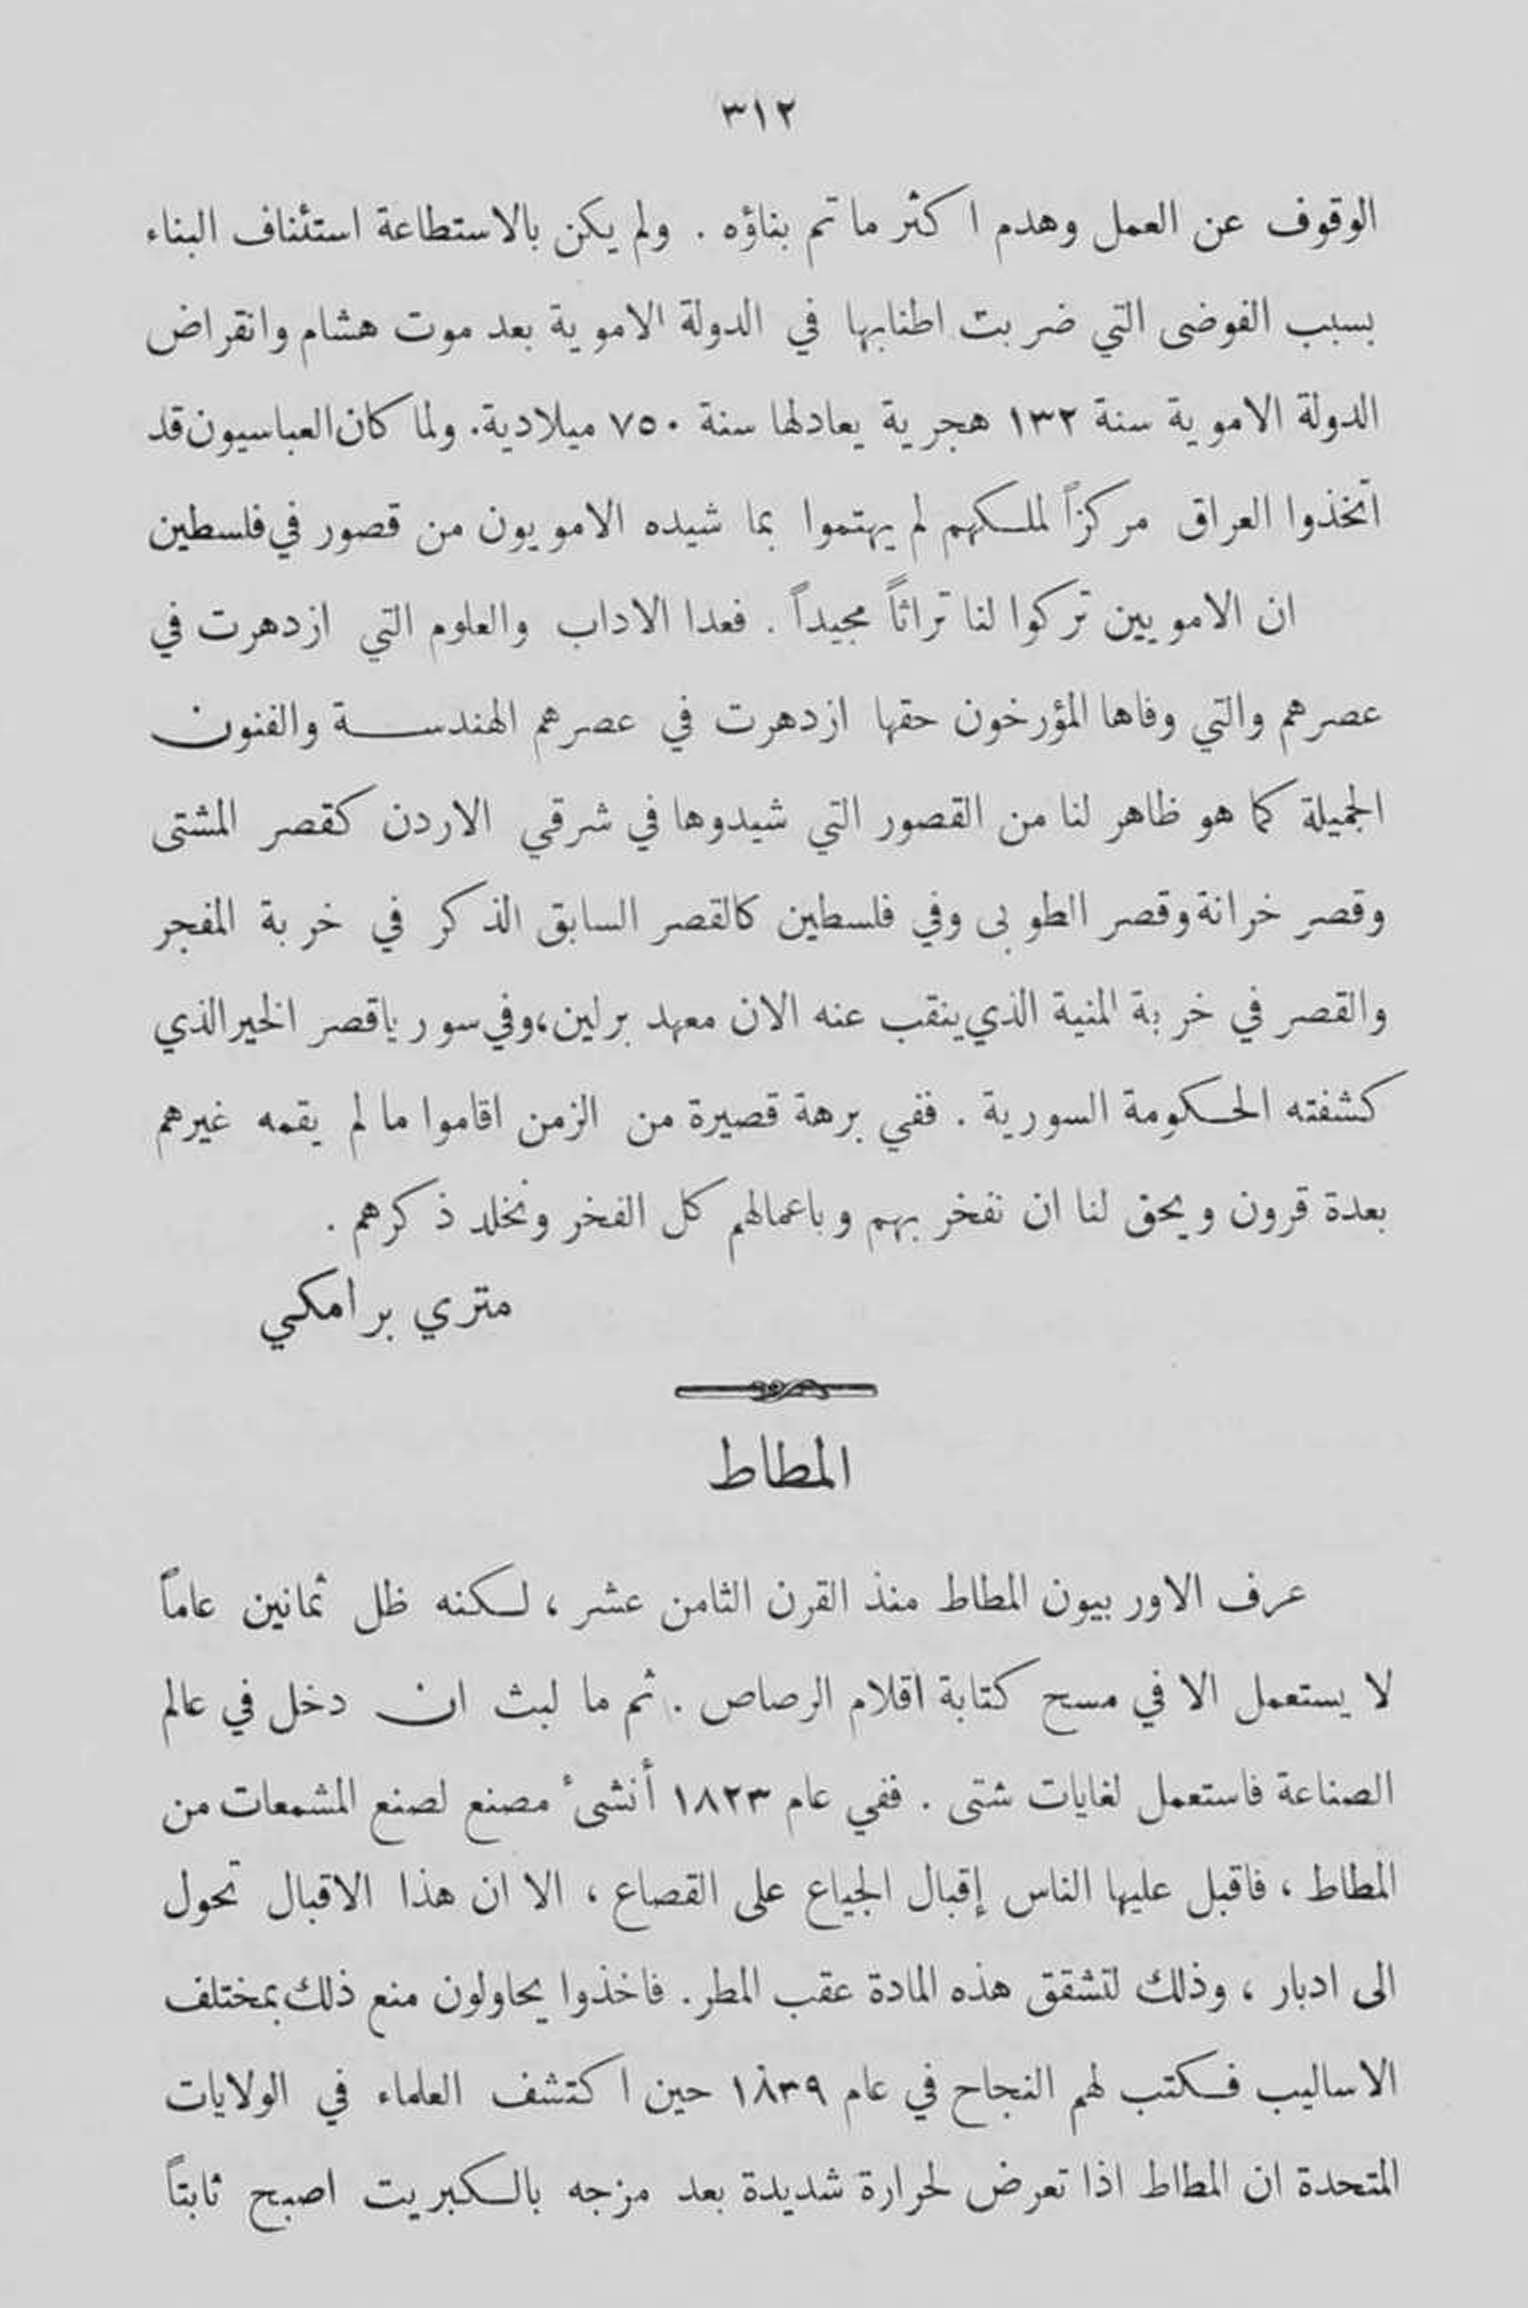 ٣١٢
الوقوف عن العمل وهدم اكثر ما تم بناؤه . ولم يكن بالاستطاعة استئناف البناء
بسبب الفوضى التي ضربت اطنابها في الدولة الاموية بعد موت هشام وانقراض
الدولة الاموية سنة ١٣٢ هجرية يعادلها سنة ٧٥٠ ميلادية. ولما كان العباسيون قد
اتخذوا العراق مركزاً لملكهم لم يهتموا بما شيده الامويون من قصور في فلسطين
ان الامويين تركوا لنا تراثاً مجيداً . فعدا الاداب والعلوم التي ازدهرت في
عصرهم والتي وفاها المؤرخون حقها ازدهرت في عصرهم الهندسة والفنون
الجميلة كما هو ظاهر لنا من القصور التي شيدوها في شرقي الاردن كقصر المشتى
وقصر خرانة وقصر الطوبى وفي فلسطين كالقصر السابق الذكر في خربة المفجر
والقصر في خربة المنية الذي ينقب عنه الان معهد برلين، وفي سوريا قصر الخير الذي
كشفته الحكومة السورية . ففي برهة قصيرة من الزمن اقاموا ما لم يقمه غيرهم
بعدة قرون ويحق لنا ان نفخر بهم وباعمالهم كل الفخر ونخلد ذكرهم .
متري برامكي
المطاط
عرف الاوربيون المطاط منذ القرن الثامن عشر ، لكنه ظل ثمانين عاماً
لا يستعمل الا في مسح كتابة اقلام الرصاص . ثم ما لبث ان دخل في عالم
الصناعة فاستعمل لغايات شتى . ففي عام ١٨٢٣ أنشىء مصنع لصنع المشمعات من
المطاط ، فاقبل عليها الناس إقبال الجياع على القصاع ، الا ان هذا الاقبال تحول
الى ادبار ، وذلك لتشقق هذه المادة عقب المطر. فاخذوا يحاولون منع ذلك بمختلف
الاساليب فكتب لهم النجاح في عام ١٨٣٩ حين اكتشف العلماء في الولايات
المتحدة ان المطاط اذا تعرض لحرارة شديدة بعد مزجه بالكبريت اصبح ثابتاً